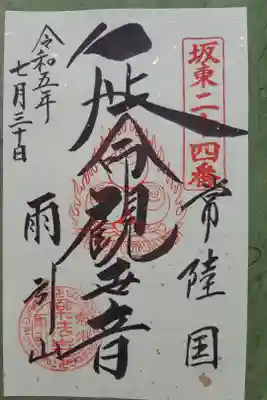 坂東二十四番
常陸国
延命観世音
雨引山
令和五年
七月三十日